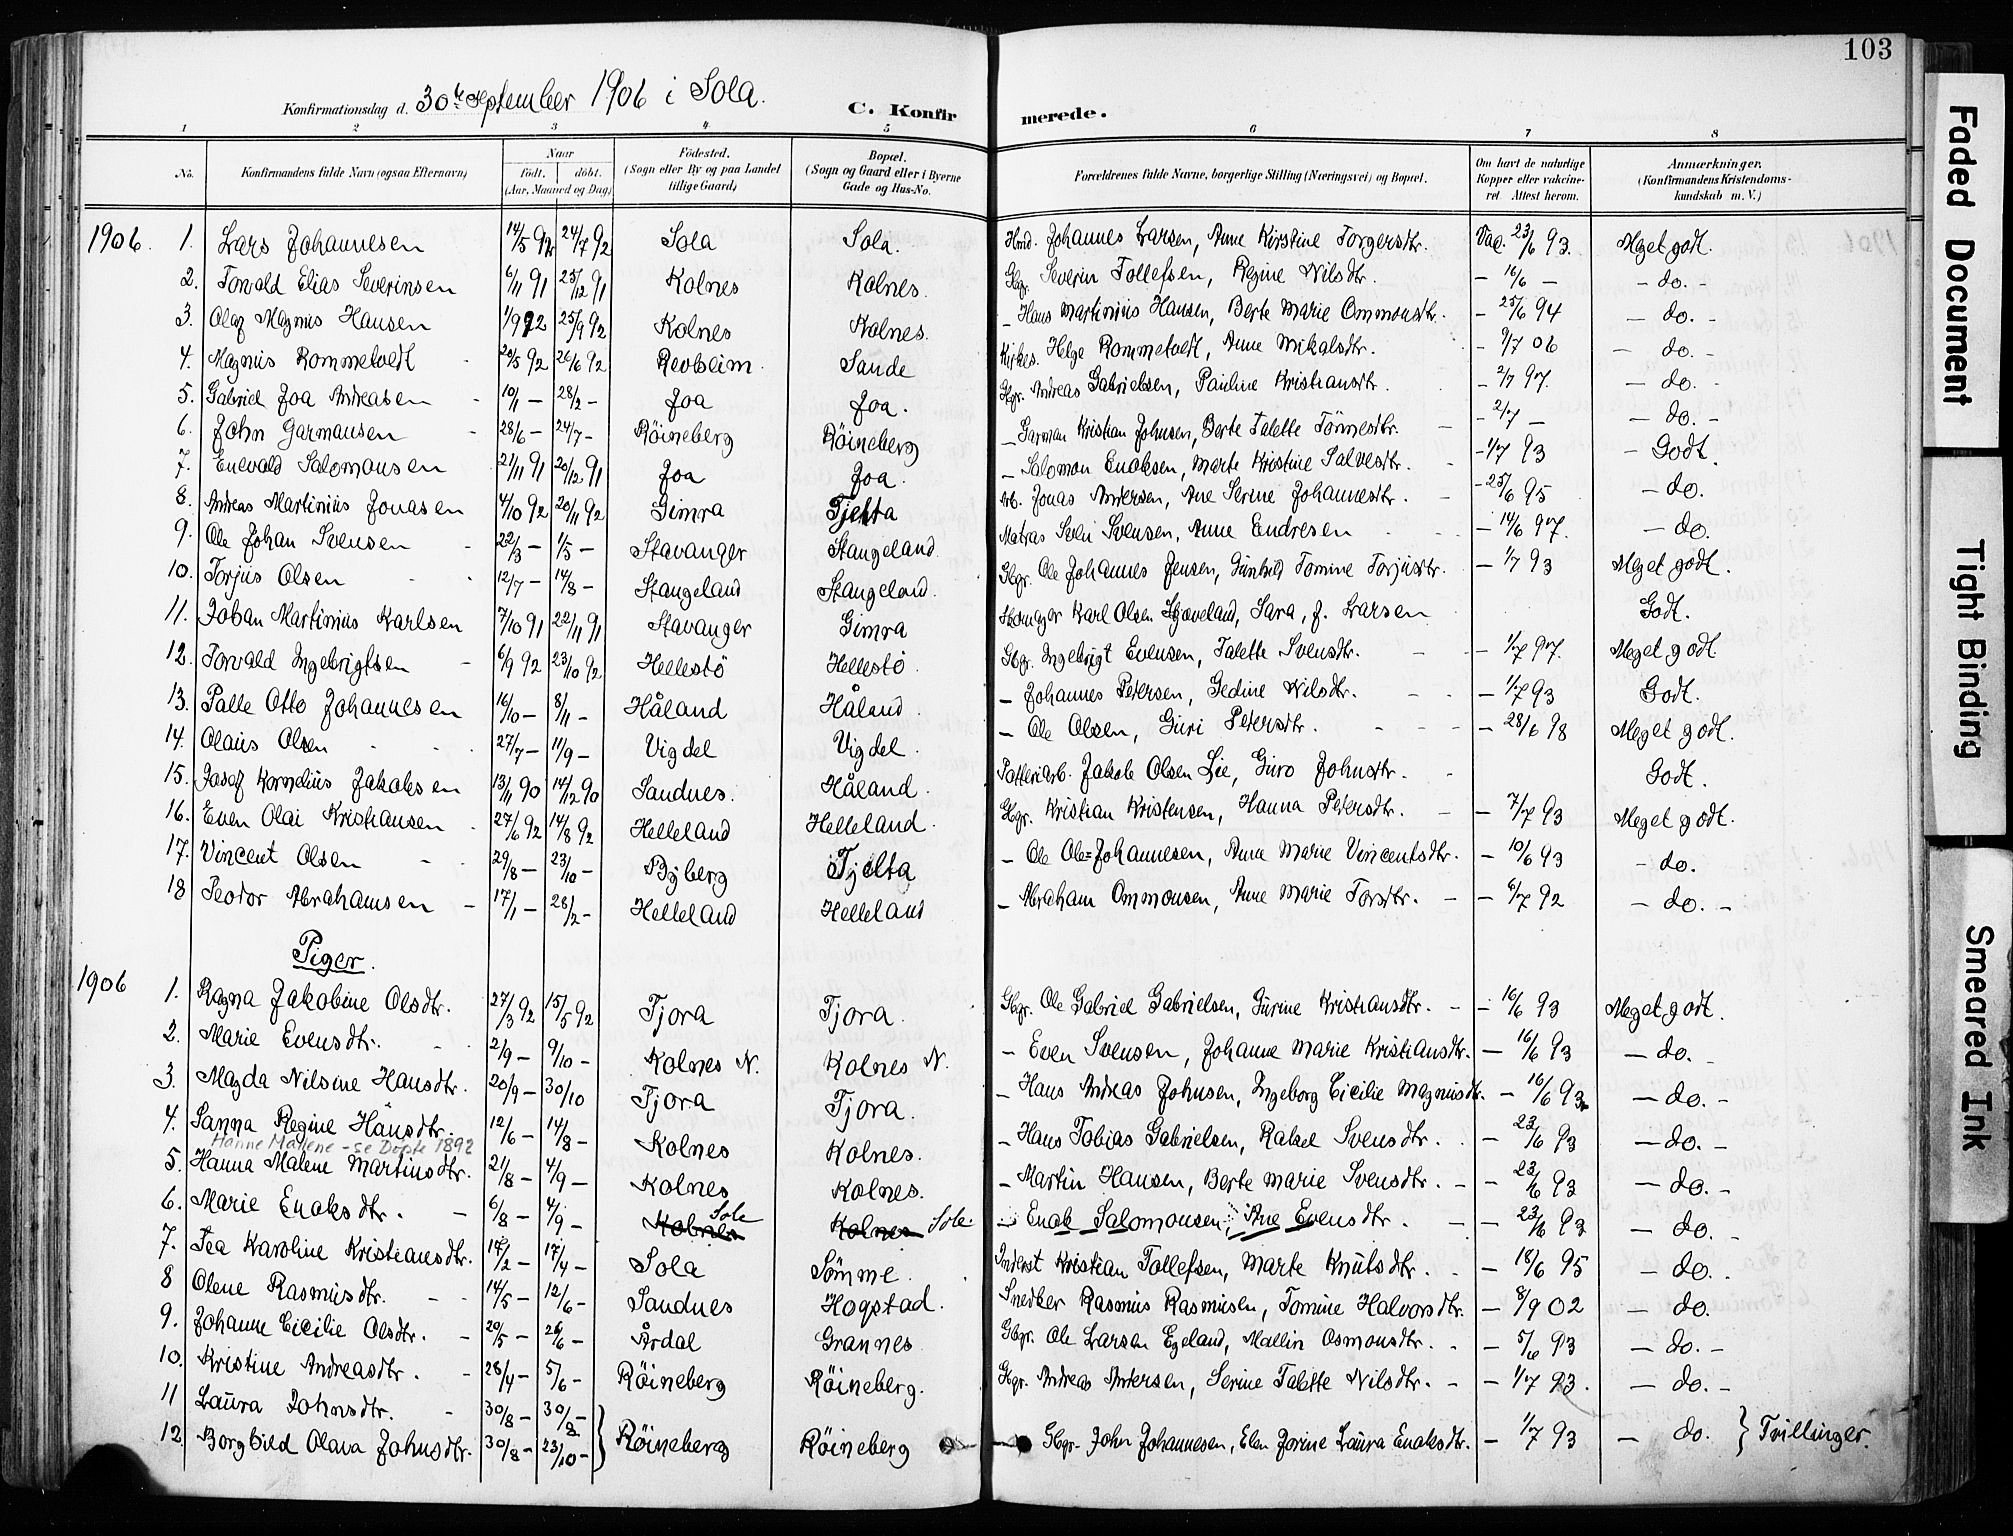 103
Konfirmationsdag d. 30te September 1906 i Sola. C. Konfirmerede.
1 2 3 4 5 6 7 8
No. Konfirmandens fulde Navn (ogsaa Efternavn) Naar født. døbt. (Aar, Maaned og Dag) Födested. (Sogn eller By og paa Landet tillige Gaard) Bopæl. (Sogn og Gaard eller i Byerne Gade og Hus-No. Forældrenes fulde Navne, borgerlige Stilling (Næringsvei) og Bopæl. Om havt de naturlige Kopper eller vakcineret. Attest herom. Anmærkninger. (Konfirmandens Kristendomskundskab m. V.)
1906. 1. Lars Johannesen 14/5 92 24/7 92 Sola Sola. Hmd. Johannes Larsen, Anne Kirstine Torgersdtr. Vac. 23/6 93. Meget godt.
2. Torvald Elias Severinsen 6/11 91 25/12 91 Kolnes Kolnes. Gbgr. Severin Tollefsen, Regine Nilsdtr. - 16/6 - - do. -
3. Olaf Magnus Hansen 1/9 92 25/9 92 Kolnes Kolnes. - Hans Martinius Hansen, Berte Marie Ommonsdtr. - 25/6 94 - do. -
4. Magnus Rommetvedt 20/5 92 26/6 92 Revheim Sande Kirkes. Helge Rommetvedt, Anne Mikalsdtr. - 9/7 06 - do. -
5. Gabriel Joa Andreasen 10/1 - 28/2 - Joa Joa. Gbgr. Andreas Gabrielsen, Pauline Kristiansdtr. - 2/7 97. - do. -
6. John Garmansen 28/6 - 24/7 - Röineberg Röineberg - Garman Kristian Johnsen, Berte Talette Tönnesdtr. - 2/7 - - do. -
7. Enevald Salomonsen 21/11 91 20/12 91 Joa Joa. - Salomon Enoksen, Marte Kristine Salvesdtr. - 1/7 93 - Godt.
8. Andreas Martinius Jonasen 4/10 92 20/11 92 Gimra Tjelta Arb. Jonas Andersen, Ane Serine Johannesdtr. - 25/6 95 - do.
9. Ole Johan Svensen 22/3 - 1/5 - Stavanger Stangeland. Matros Sven Svensen, Anne Endresen - 14/6 97. - do.
10. Torjus Olsen 12/7 - 14/8 - Stangeland Stangeland. Gbgr. Ole Johannes Jensen, Gunhild Tomine Torjusdtr. - 1/7 93 Meget godt.
11. Johan Martinius Karlsen 7/10 91 22/11 91 Stavanger Gimra Skomager Karl Olsen Skjæveland, Sara, f. Larsen Godt.
12. Torvald Ingebrigtsen 6/9 92 23/10 92 Hellestö Hellestö Gbgr. Ingebrigt Evensen, Talette Svensdtr. - 1/7 97. Meget godt
13. Palle Otto Johannesen 16/10 - 8/11 - Håland Håland. - Johannes Petersen, Gedine Nilsdtr. - 1/7 93 Godt.
14. Olaus Olsen 27/7 - 11/9 - Vigdel Vigdel. - Ole Olsen, Guri Petersdtr. - 28/6 98 Meget godt.
15. Josef Kornelius Jakobsen 13/11 90 14/12 90 Sandnes. Håland. Potteriarb. Jakob Olsen Lie, Guro Johnsdtr. Godt.
16. Even Olai Kristiansen 27/6 92 14/8 92 Helleland Helleland. Gbgr. Kristian Kristensen, Hanna Petersdtr. - 7/7 93 Meget godt.
17. Vincent Olsen 29/8 - 23/10 - Byberg Tjelta - Ole Ole=Johannesen, Anna Marie Vincentsdtr. - 10/6 93 - do.
18 Peotor Abrahamsen - 17/1 - 28/2 - Helleland Helleland - Abraham Ommonsen, Anne Marie Torsdtr. - 6/7 92 - do. -
Piger.
1906 1. Ragna Jakobine Olsdtr. 27/3 92 15/5 92 Tjora Tjora. Gbgr. Ole Gabriel Gabrielsen, Gurine Kristiansdtr. - 16/6 93 Meget godt.
2. Marie Evensdtr. 2/9 - 9/10 - Kolnes N. Kolnes N. - Even Svensen, Johanne Marie Kristiansdtr. - 16/6 93 - do. -
3. Magda Nilsine Hansdtr. 20/9 - 30/10 Tjora Tjora. - Hans Andreas Johnsen, Ingeborg Cicilie Magnusdtr. - 16/6 93 - do. -
4. Sanna Regine Hansdtr. 12/6 - 14/8 - Kolnes Kolnes. - Hans Tobias Gabrielsen, Rakel Svensdtr. - 23/6 93 - do. -
Hanne Malene - se Døpte 1892
5. Hanna Malene Martinsdtr. 21/8 - 4/9 - Kolnes Kolnes. - Martin Hansen, Berte Marie Svensdtr. - 23/6 93 - do. -
6. Marie Enoksdtr. - 6/8 - 4/9 - Kolnes Sole Kolnes Sole - Enok Salomonsen, Ane Evensdtr. - 23/6 93 - do. -
7. Tea Karoline Kristiansdtr. 14/2 - 17/4 - Sola Sömme. Inderst Kristian Tollefsen, Marte Knutsdtr. - 18/6 95 - do. -
8 Olene Rasmusdtr. 14/5 - 12/6 - Sandnes Hogstad. Snedker Rasmus Rasmusen, Tomine Halvorsdtr. - 8/9 02 - do.
9. Johanne Cicilie Olsdtr. - 20/5 - 26/6 - Årdal Grannes Gbgr. Ole Larsen Egeland, Mallin Osmonsdtr. - 5/6 93 - do. -
10. Kristine Andreasdtr. - 28/4 - 5/6 - Röineberg Röineberg. Gbgr. Andreas Andersen, Serine Talette Nilsdtr. - 1/7 93. - do. -
11 Laura Johnsdtr. - 30/8 - 30/8 -
12. Borghild Olava Johnsdtr. 30/8 - 23/10 - } Röineberg Röineberg - Gbgr. John Johannesen, Elen Jorine Laura Enoksdtr. - 1/7 93 - do. } Tvillinger.
Faded Document
Tight Binding
Smeared Ink